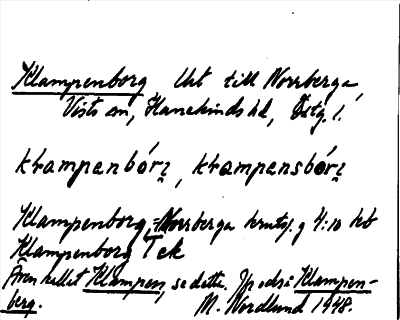 Klampenborg Uht till Norrberga,
Vists sn, Hanekinds hd, Östg. l.
krampanbórz, krampansbórz
Klampenborg, =Norrberga krutsj. g 4:10 kb
Klampenborg Tek
Även kallat Klampen, se detta. Uppodr: Klampen-
berg. M. Nordlund 1948.